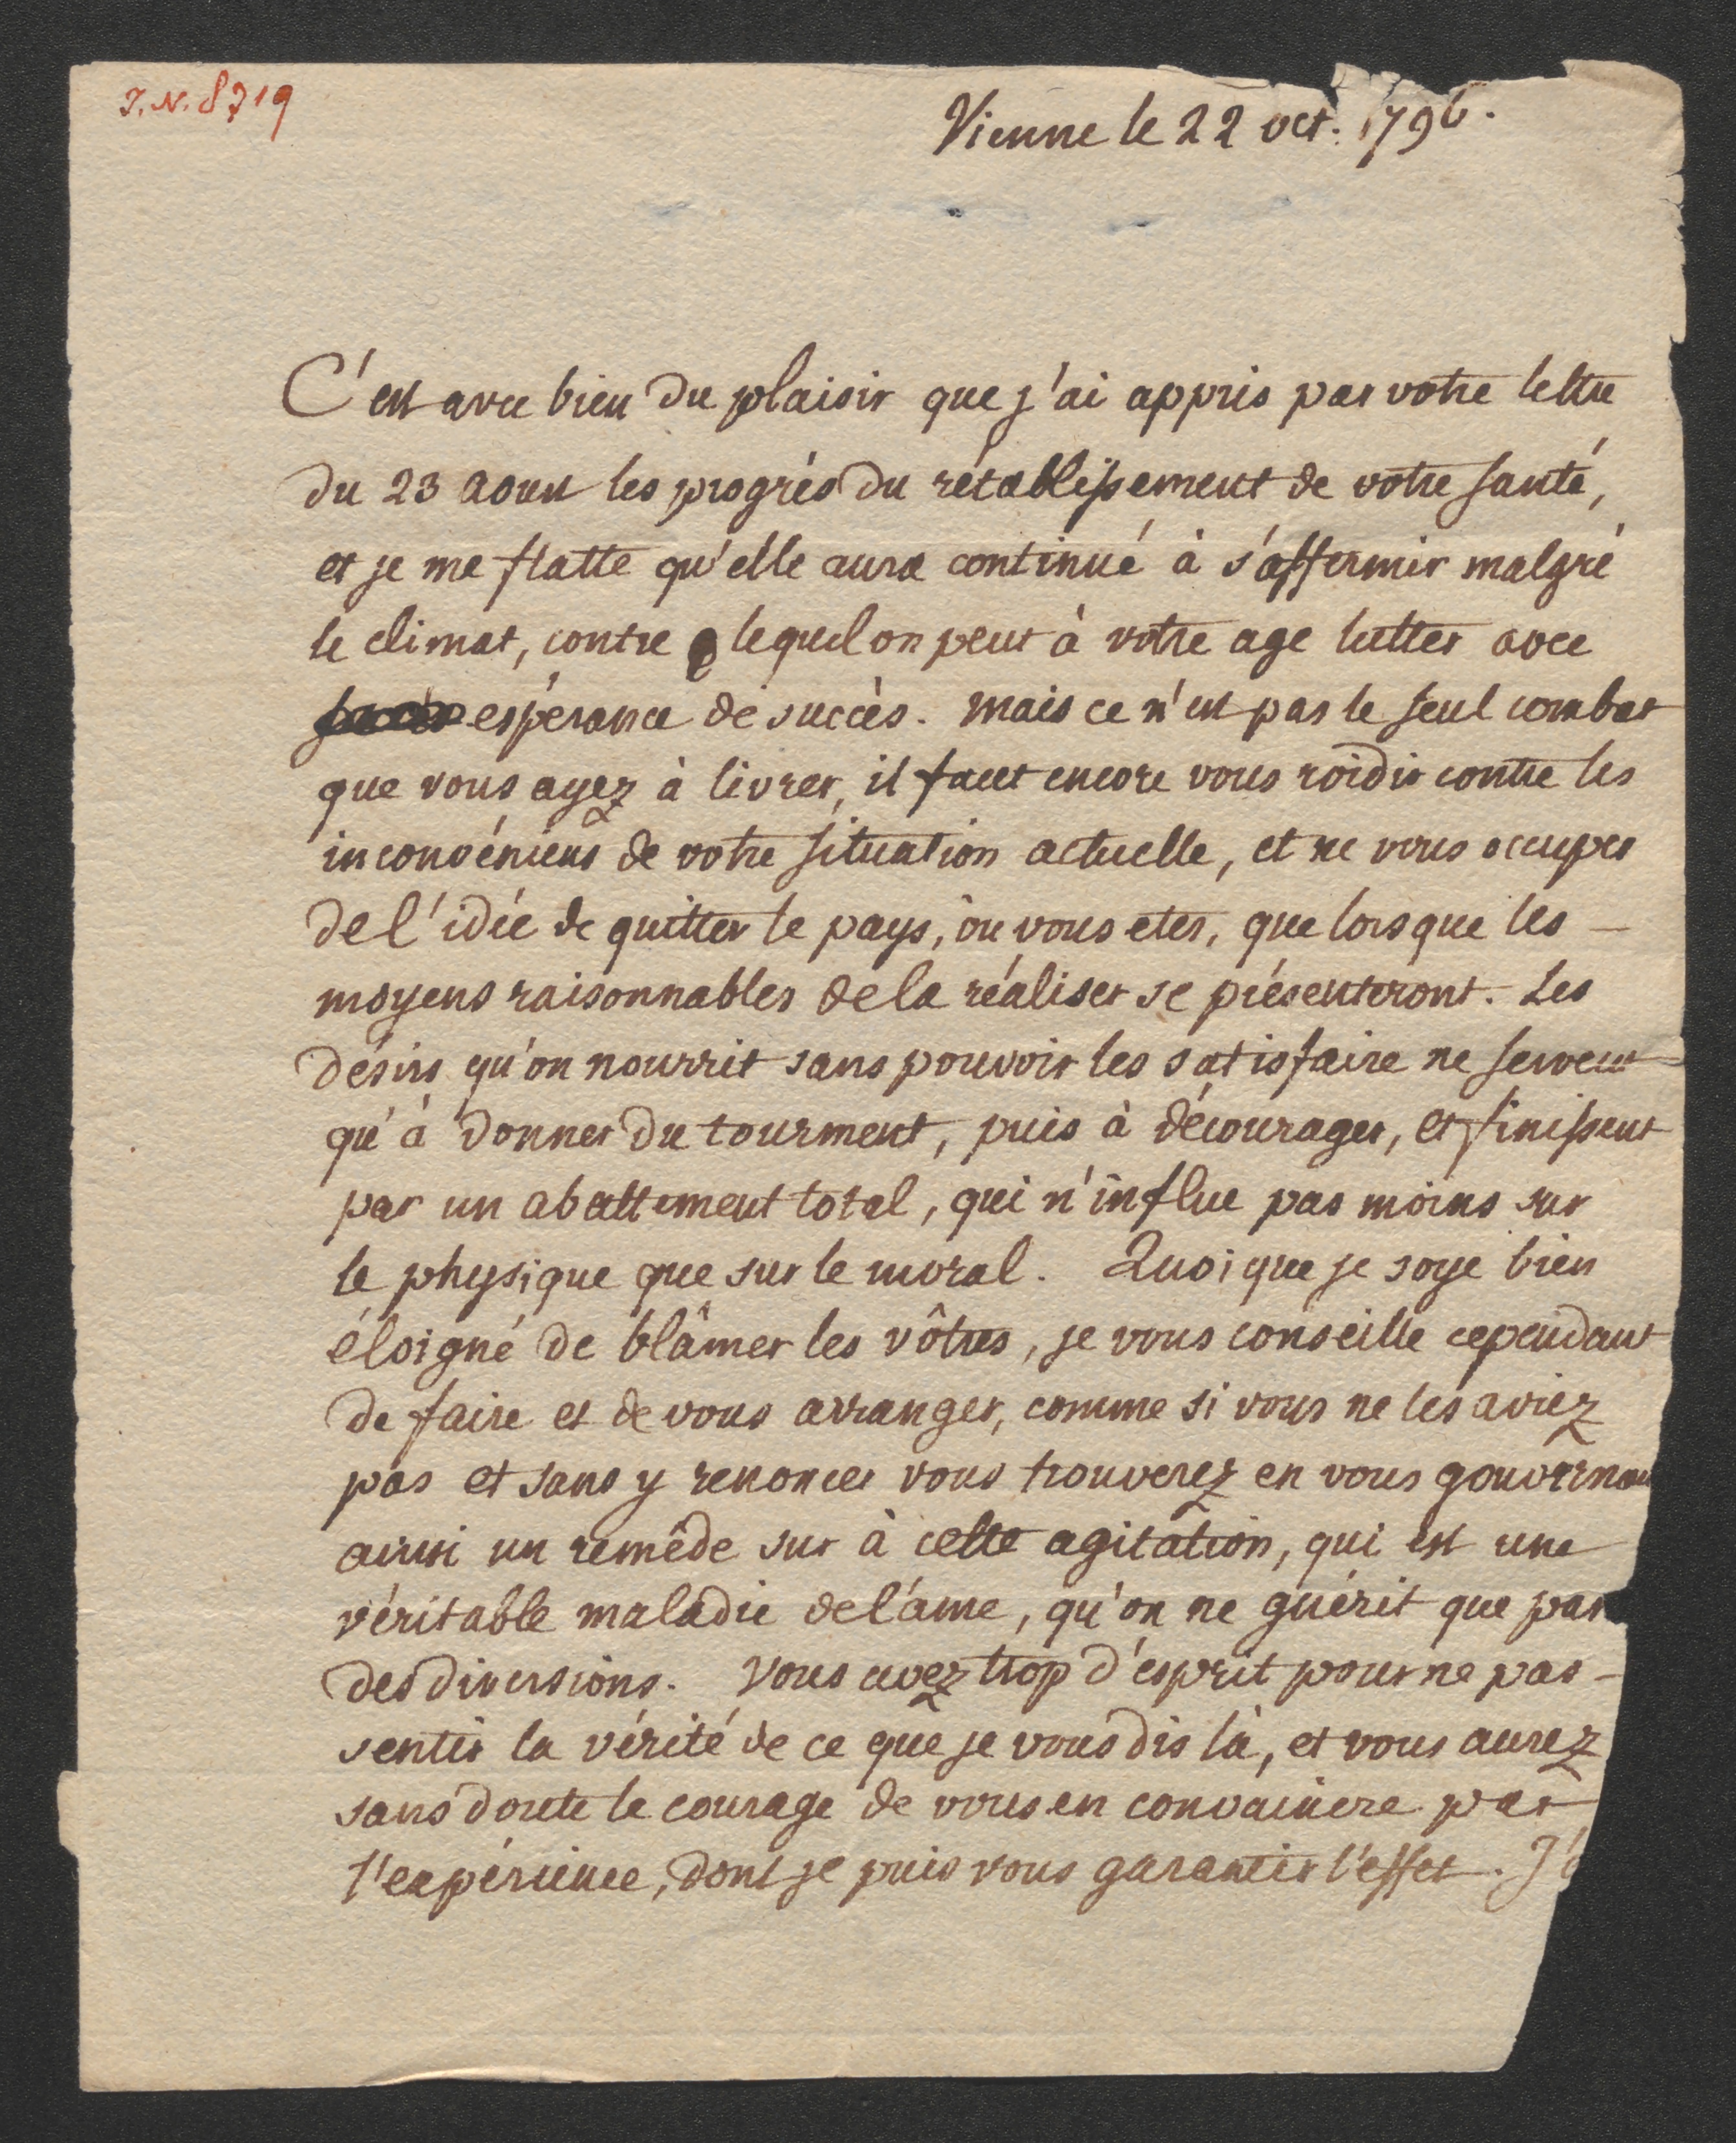 I.N. 8719
Vienne le 22 oct. 1796.
C'est avec bien du plaisir que j'ai appris par votre lettre
du 23 aoust les progrès du rétablissement de votre santé,
et je me flatte qu'elle aura continué à s'affermir malgré
le climat, contre lequel on peut à votre age lutter avec
espérance de succès. mais ce n'est pas le seul combat
que vous ayez à livrer, il faut encore vous roidir contre les
inconvéniens de votre situation actuelle, et ne vous occuper
de l'idée de quitter le pays, ou vous etes, que lorsque les
moyens raisonnables de la réaliser se présenteront. Les
désirs qu'on nourrit sans pouvoir les satisfaire ne servent
qu'à donner du tourment, puis à décourager, et finissent
par un abattement total, qui n'influe pas moins sur
le physique que sur le moral. Quoique je soye bien
éloigné de blâmer les vôtres, je vous conseille cependant
de faire et de vous arranger, comme si vous ne les aviez
pas et sans y renoncer vous trouverez en vous gouvernan
ainsi un remêde sur à cette agitation, qui est une
véritable maladie de l'ame, qu'on ne guérit que par
des diversions. Vous avez trop d'esprit pour ne pas
sentir la vérité de ce que je vous dis là, et vous aurez
sans doute le courage de vous en convaincre par
l'expérience, dont je puis vous garantir l'effet. J'